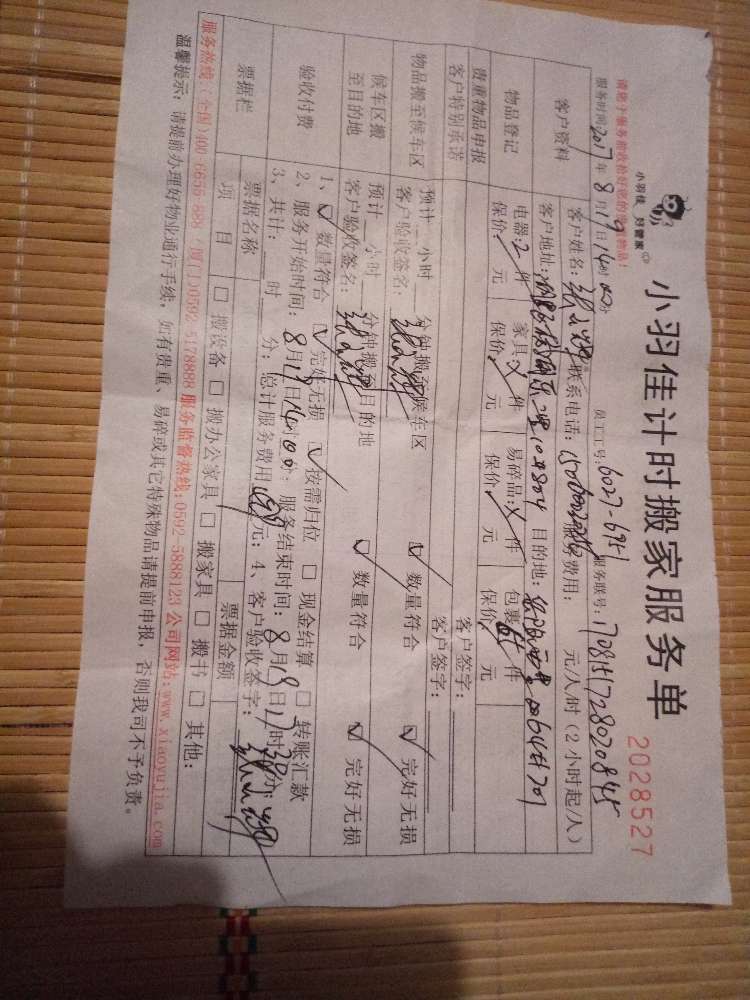 小羽佳 好管家
小羽佳计时搬家服务单
2028527
请您于服务前收拾好您的贵重物品！
服务时间2017年8月19日14时00分 员工工号:6027-6951 服务联号:1708151728020845
客户资料
客户姓名: 联系电话: 服务费用: 元/人/时（2小时起/人）
客户地址: 目的地:
物品登记
电器:2件 家具:件 易碎品:件 包裹件
保价:元 保价:元 保价:元 保价:元
贵重物品申报
客户特别承诺
客户签字:
客户签字:
物品搬至候车区
预计:小时分钟搬至候车区
客户验收签名: 数量符合 完好无损
候车区搬至目的地
预计小时分钟搬至目的地
客户验收签名: 数量符合 完好无损
验收付费
1、数量符合 完好无损 按需归位 □ 现金结算 □ 转账汇款
2、服务开始时间:8月19日14时00分; 服务结束时间:8月19日17时30分;
3、共计:时分; 总计服务费用元; 4、客户验收签字:
票据栏
票据名称 票据金额
项目 □ 搬设备 □ 搬办公家具 □ 搬家具 □ 搬书 □ 其他:
服务热线:(全国)400-6656-888 (厦门)0592-5178888 服务监督热线:0592-5888123 公司网站:www.xiaoyujia.com
温馨提示: 请提前办理好物业通行手续, 如有贵重、易碎或其它特殊物品请提前申报, 否则我司不予负责。